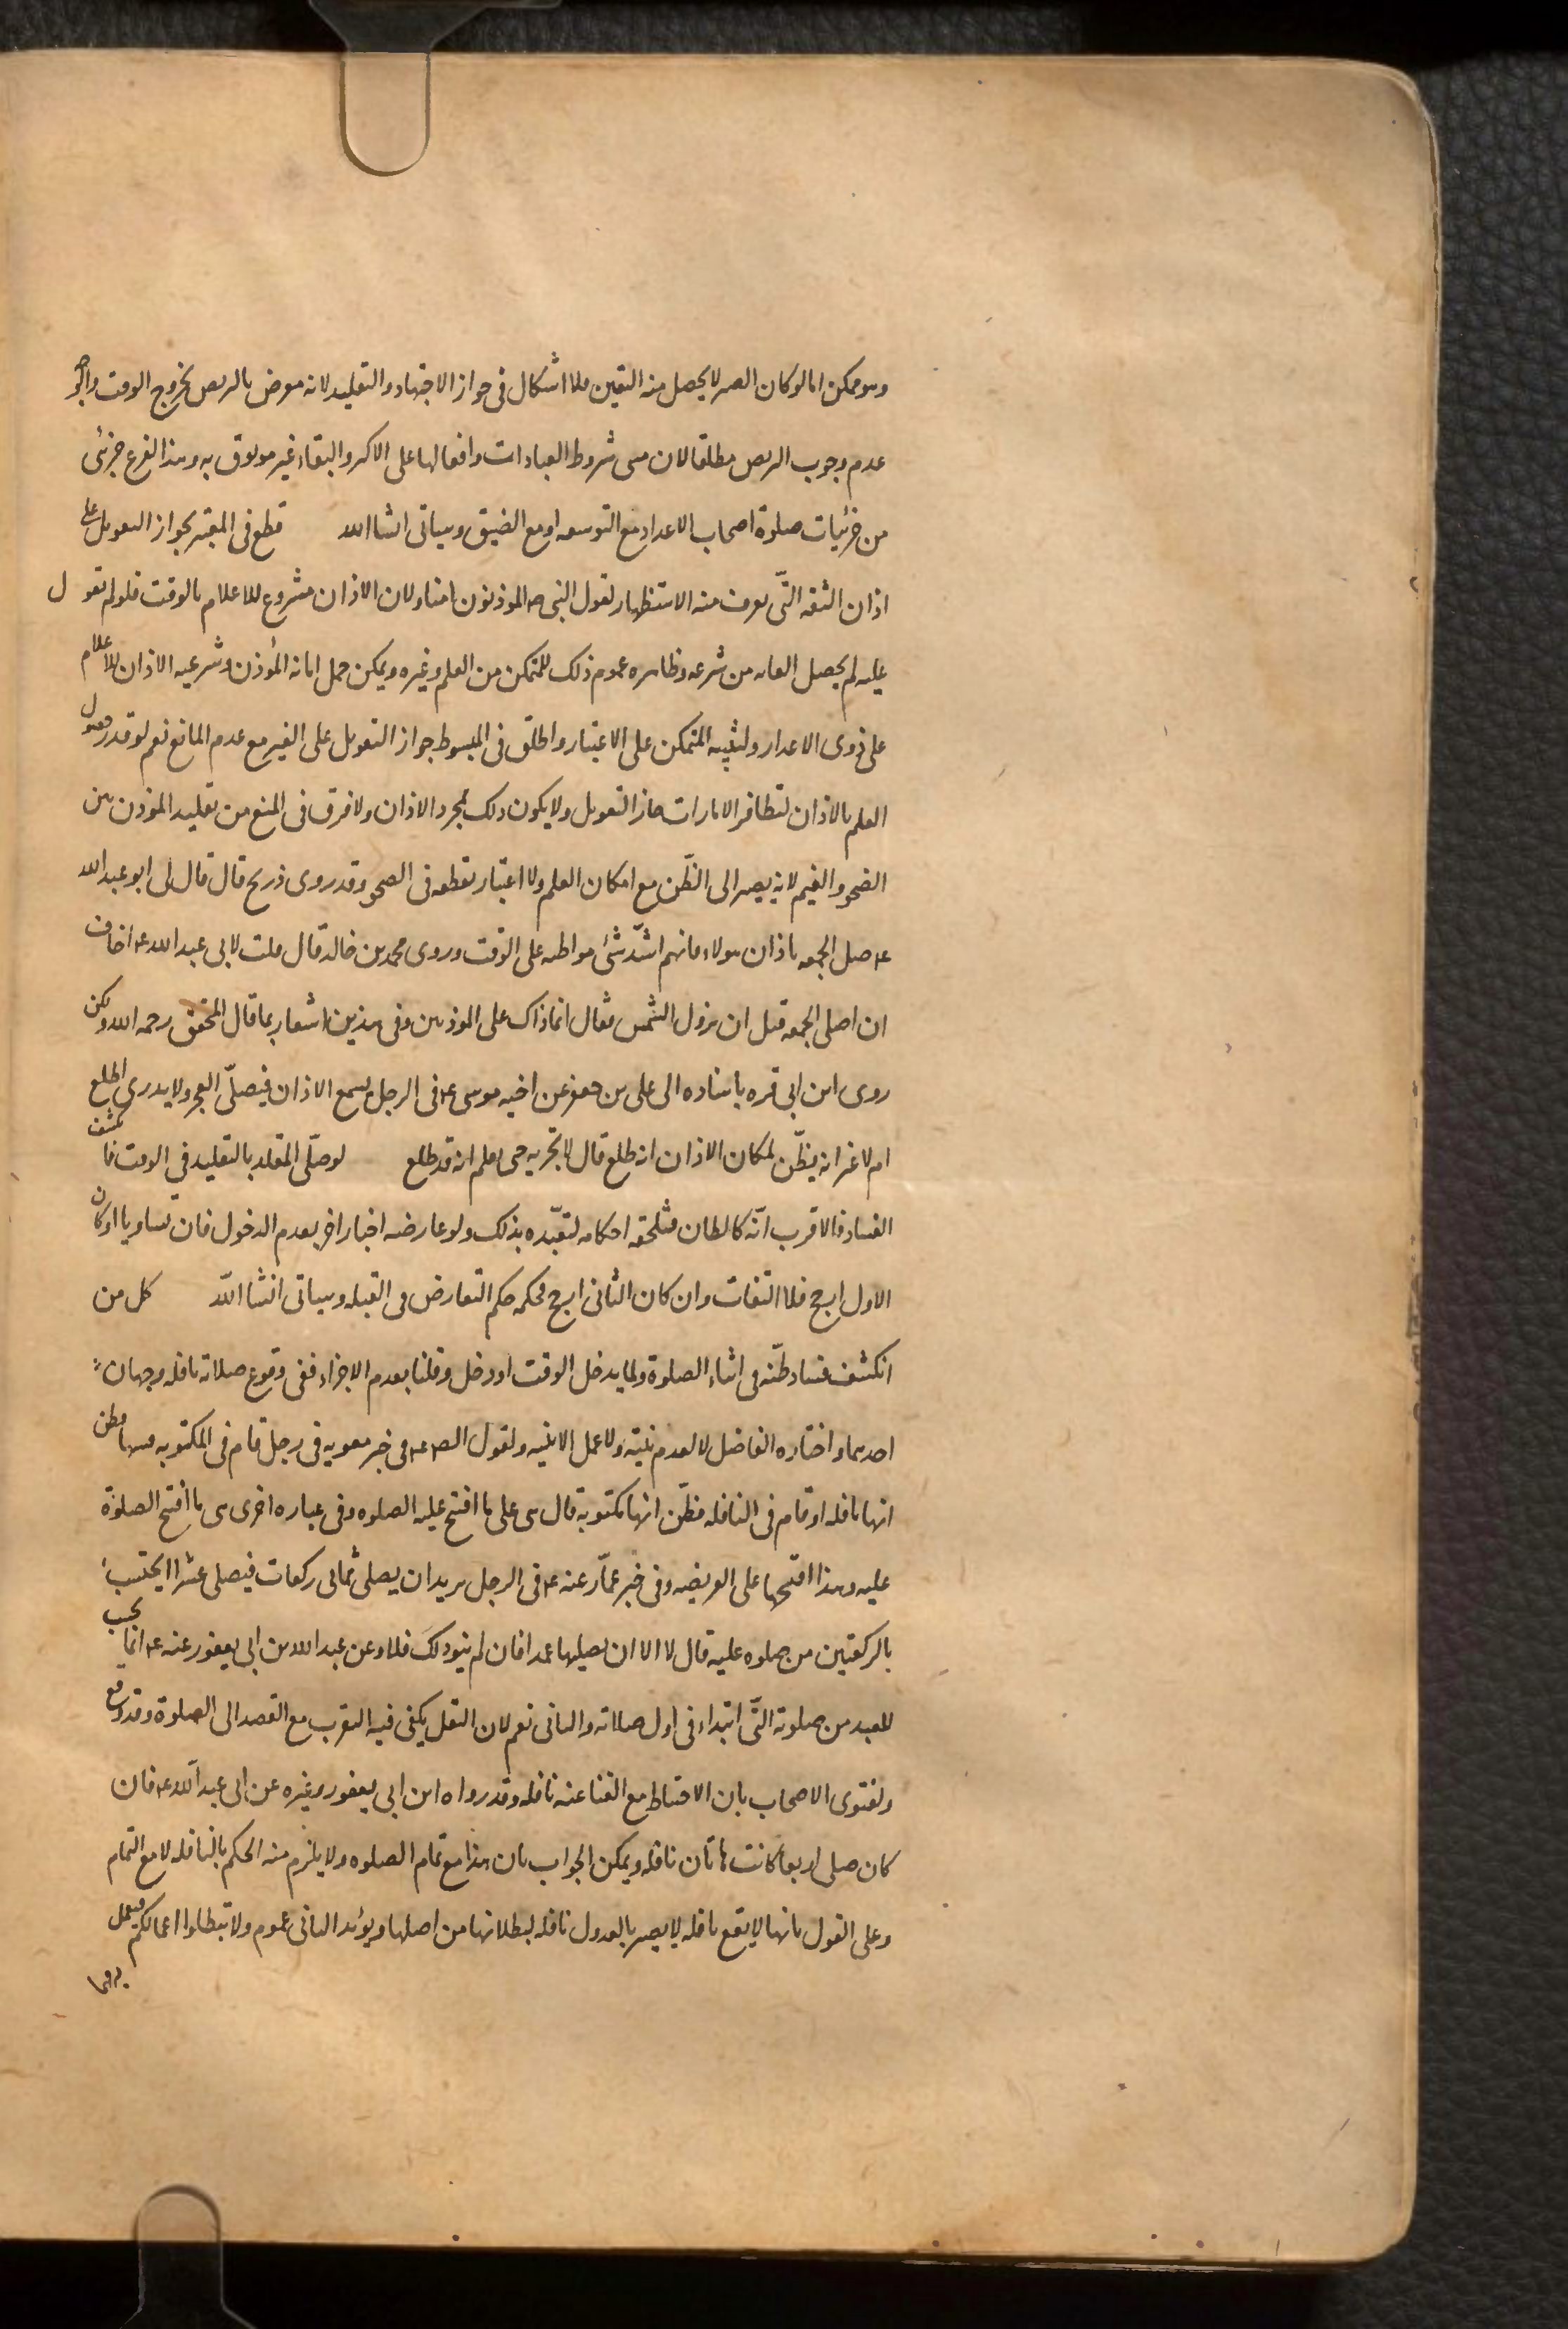 وهو ممكن اما لو كان الصبر لا يحصل منه اليقين فلا اشكال فى جواز الاجتهاد والتقليد لانه معرض بالتربص بخروج الوقت والوجه
عدم وجوب التربص مطلقا لان مبنى شروط العبادات وافعالها على الاكثر والبقاء غير موثوق به وهذا الفرع جزئى
من جزئيات صلوة اصحاب الاعذار مع التوسعه او مع الضيق وسياتى انشا الله قطع فى المعتبر بجواز التعويل على
اذان الثقه الّتى يعرف منه الاستظهار لقول النبى ص المؤذنون امناء ولان الاذان مشروع للاعلام بالوقت فلو لم يعول
عليه لم يحصل الغايه من شرعه وظاهره عموم ذلك للمتمكن من العلم وغيره ويمكن حمل امانه المؤذن وشرعيه الاذان للاعلام
على ذوى الاعذار ولتنبيه المتمكن على الاعتبار واطلق فى المبسوط جواز التعويل على الغير مع عدم المانع نعم لو قدر حصول
العلم بالاذان لتظافر الامارات جاز التعويل ولا يكون ذلك لمجرد الاذان ولا فرق فى المنع من تقليد المؤذن بين
الصحو والغيم لانه يصير الى الظّن مع امكان العلم ولا اعتبار بقطعه فى الصحو وقد روى ذريح قال قال لى ابو عبد الله
ع صل الجمعه باذان هولاء فانهم اشدّ شئ مواظبه على الوقت وروى محمد بن خالد قال قلت لابى عبد الله ع اخاف
ان اصلى الجمعه قبل ان تزول الشمس فقال انما ذاك على المؤذنين وفى هذين اشعار بما قال المحقق رحمه الله ولكن
روى ابن ابى قره باسناده الى على بن جعفر عن اخيه موسى ع فى الرجل يسمع الاذان فيصلّى الفجر ولا يدرى اطلع
ام لا غير انه يظّن لمكان الاذان انه طلع قال لا يجزيه حتى يعلم انه قد طلع لو صلّى المقلد بالتقليد فى الوقت فانكشف
الفساد فالاقرب انّه كالظان فتلحقه احكامه لتعبّده بذلك ولو عارضه اخبار اخر بعدم الدخول فان تساويا او كان
الاول ارجح فلا التفات وان كان الثانى ارجح فحكمه حكم التعارض فى القبله وسياتى انشا اللّه كل من
انكشف فساد ظنّه فى اثناء الصلوة ولما يدخل الوقت او دخل وقلنا بعدم الاجزاء ففى وقوع صلاته نافله وجهان
احدهما واختاره الفاضل لا لعدم نيّته ولا عمل الا بنيه ولقول الص ع فى خبر معويه فى رجل قام فى المكتوبه فسها فظن
انها نافله او قام فى النافله فظّن انها مكتوبة قال هى على ما افتتح عليه الصلوه وفى عباره اخرى هى ما افتتح الصلوة
عليه وهذا افتتحها على الفريضه وفى خبر عمّار عنه ع فى الرجل يريد ان يصلى ثمانى ركعات فيصلى عشرا ايحتسب
بالركعتين من صلوه عليه قال لا الا ان يصليها عمدا فان لم ينو ذلك فلا وعن عبد الله بن ابى يعفور عنه ع انما يحسب
للعبد من صلوته الّتى ابتداء فى اول صلاته والثانى نعم لان النفل يكفى فيه التقرب مع القصد الى الصلوة وقد وقع
ولفتوى الاصحاب بان الاحتياط مع الغنا عنه نافله وقد رواه ابن ابى يعفور وغيره عن ابى عبد اللّه ع فان
كان صلى اربعا كانت هاتان نافله ويمكن الجواب بان هذا مع تمام الصلوه ولا يلزم منه الحكم بالنافله لا مع التمام
وعلى القول بانها لا يقع نافله لا يصير بالعدول نافله لبطلانها من اصلها ويؤيد الثانى عموم ولا تبطلوا اعمالكم فيعمل